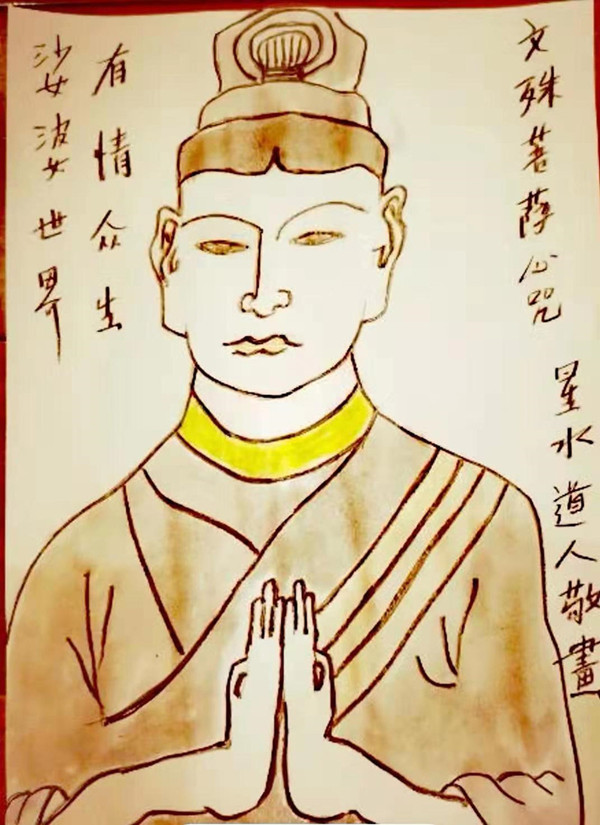 文殊菩萨心咒
星水道人敬畫
有情众生
娑婆世界